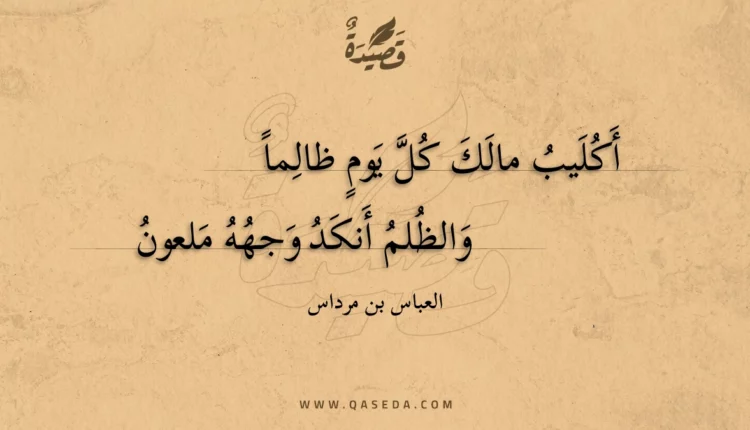 قَصِيْدَةٌ
أَكُلَيبُ مالَكَ كُلَّ يَومٍ ظالِماً
وَالظُلمُ أَنكَدُ وَجهُهُ مَلعونُ
العباس بن مرداس
WWW.QASEDA.COM